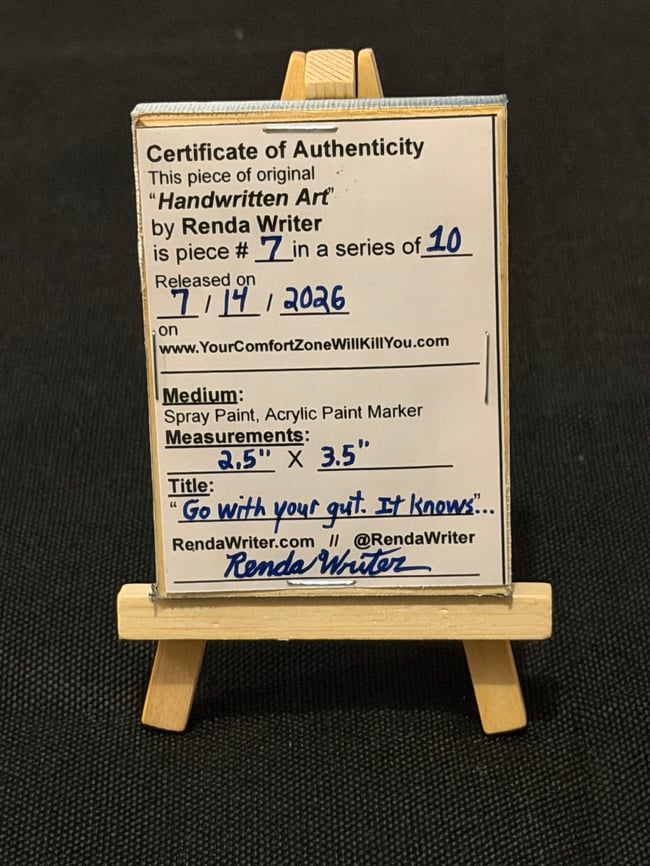 Certificate of Authenticity
This piece of original
"Handwritten Art"
by Renda Writer
is piece # 7 in a series of 10
Released on
7 / 14 / 2026
on
www.YourComfortZoneWillKillYou.com
Medium:
Spray Paint, Acrylic Paint Marker
Measurements:
2.5" X 3.5"
Title:
"Go with your gut. It knows"...
RendaWriter.com // @RendaWriter
Renda Writer